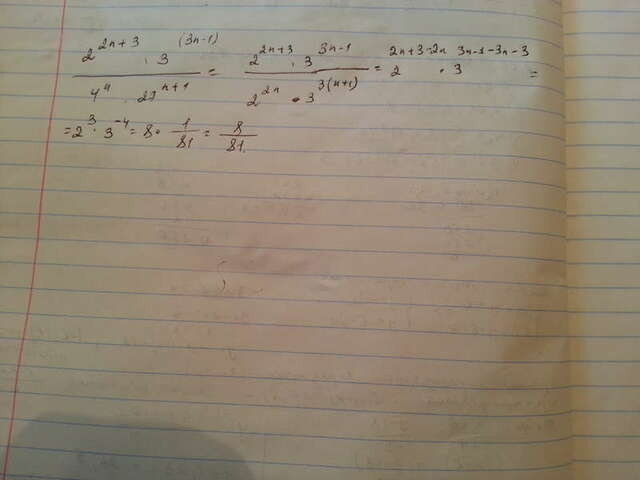 2^{2n+3} · 3^{(3n-1)} / 4^n · 27^{n+1} = 2^{2n+3} · 3^{3n-1} / 2^{2n} · 3^{3(n+1)} = 2^{2n+3-2n} · 3^{3n-1-3n-3} =
= 2^3 · 3^{-4} = 8 · 1/81 = 8/81.